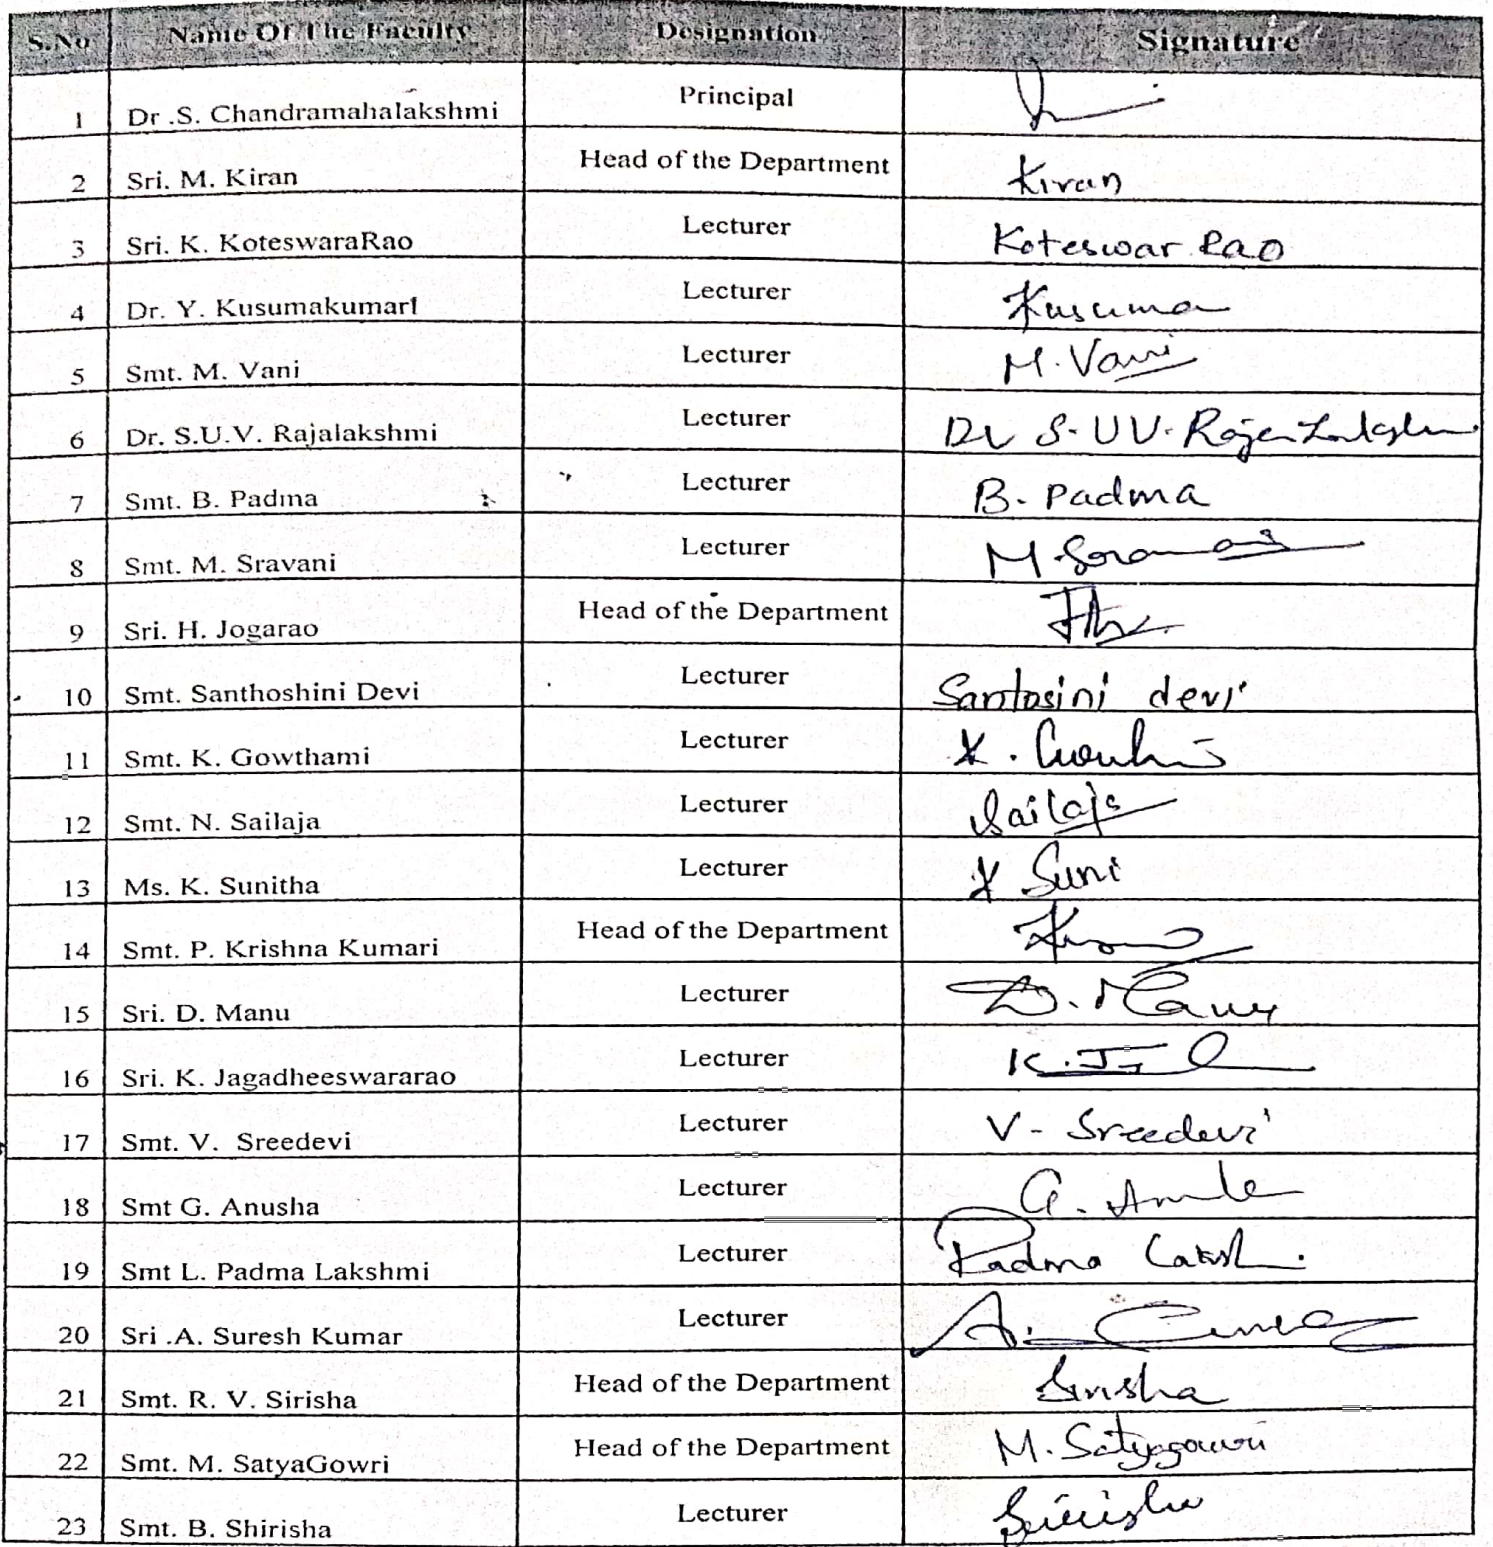 S.No Name Of The Faculty Designation Signature
1 Dr .S. Chandramahalakshmi Principal
2 Sri. M. Kiran Head of the Department Kiran
3 Sri. K. KoteswaraRao Lecturer Koteswar Rao
4 Dr. Y. Kusumakumari Lecturer Kusuma
5 Smt. M. Vani Lecturer M. Vani
6 Dr. S.U.V. Rajalakshmi Lecturer Dr S. UV. Rajalakshmi
7 Smt. B. Padma Lecturer B. Padma
8 Smt. M. Sravani Lecturer M
9 Sri. H. Jogarao Head of the Department
10 Smt. Santhoshini Devi Lecturer Santosini devi
11 Smt. K. Gowthami Lecturer K.
12 Smt. N. Sailaja Lecturer Sailaja
13 Ms. K. Sunitha Lecturer K Suni
14 Smt. P. Krishna Kumari Head of the Department
15 Sri. D. Manu Lecturer D. Manu
16 Sri. K. Jagadheeswararao Lecturer K. J
17 Smt. V. Sreedevi Lecturer V - Sreedevi
18 Smt G. Anusha Lecturer G.
19 Smt L. Padma Lakshmi Lecturer Padma
20 Sri .A. Suresh Kumar Lecturer A.
21 Smt. R. V. Sirisha Head of the Department Sirisha
22 Smt. M. SatyaGowri Head of the Department M. Satyagowri
23 Smt. B. Shirisha Lecturer